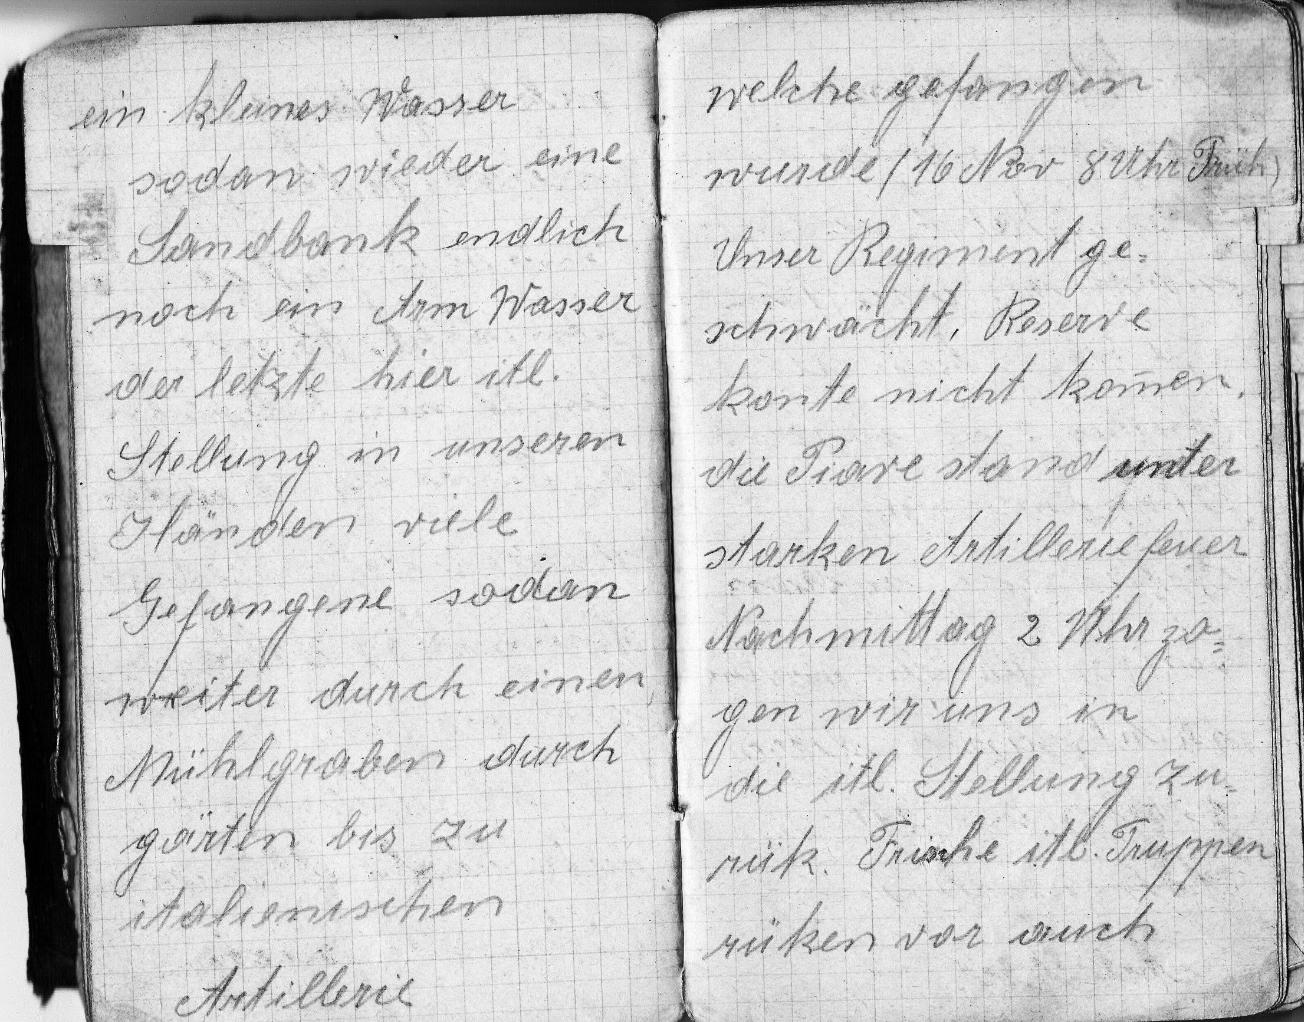 ein kleines Wasser
sodan wieder eine
Sandbank endlich
noch ein Arm Wasser
der letzte hier itl.
Stellung in unseren
Händen viele
Gefangene sodan
weiter durch einen
Mühlgraben durch
gärten bis zu
italienischen
Artillerie
welche gefangen
wurde (16 Nov 8 Uhr Früh)
Unser Regiment ge=
schwächt, Reserve
konte nicht kom̄en.
die Piave stand unter
starken Artilleriefeuer
Nachmittag 2 Uhr zo=
gen wir uns in
die itl. Stellung zu=
rük. Frische itl. Truppen
rüken vor auch